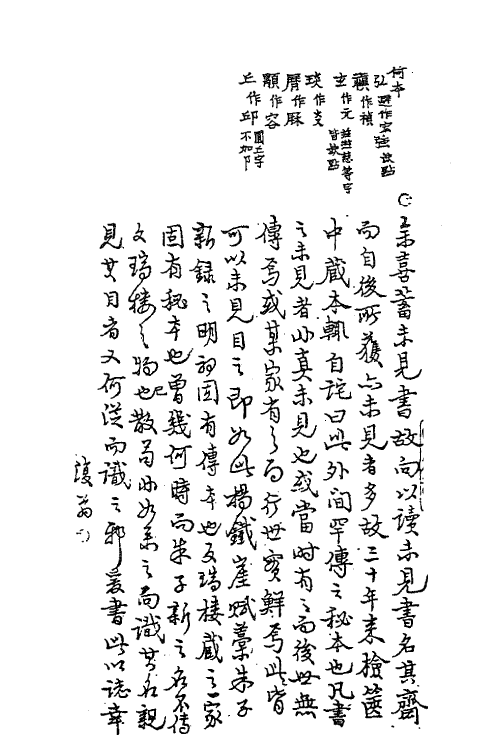 何本
弘避作宏強缺點
禛作禎
玄作元茲弦慈等字皆缺點
琰作炎
胤作
顒作容
丘作邱圜丘字不加阝
余喜蓄未見書故向以讀未見書名其齋
而自後所獲亦未見者多故三十年來檢篋
中藏本輒自詫曰此外間罕傳之秘本也凡書
之未見者非真未見也或當時有之而後世無
傳焉或某家有之而行世實鮮焉此皆
可以未見目之即如此楊鐵崖賦藁朱子
新錄之明初固有傳本也文瑞樓藏之一家
固有秘本也曾幾何時而朱子新之名不傳
文瑞樓之物也已散苟非如余之而識其名親
見其目者又何從而識之邪爰書此以誌幸
復翁